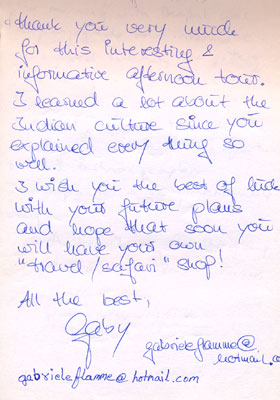 thank you very much
for this interesting &
informative afternoon tour.
I learned a lot about the
Indian culture since you
explained every thing so
well.
I wish you the best of luck
with your future plans
and hope that soon you
will have your own
"travel/safari" shop!
All the best,
Gaby
gabrieleflamme@
hotmail.co
gabrieleflamme@hotmail.com